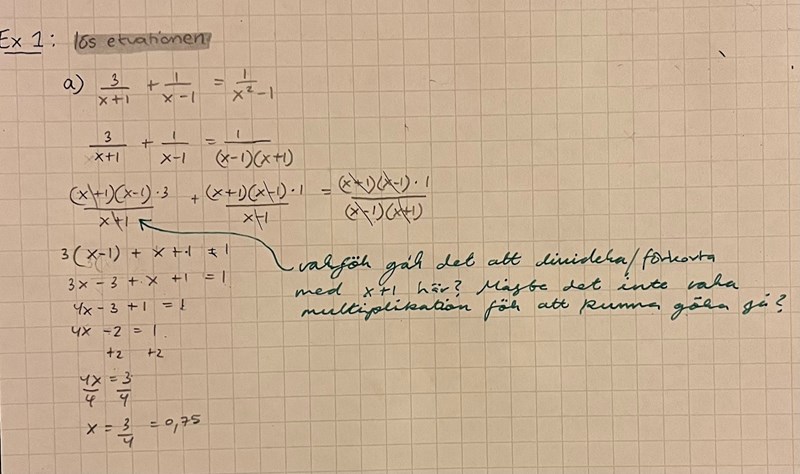 Ex 1: lös ekvationen
a) 3/(x+1) + 1/(x-1) = 1/(x²-1)
3/(x+1) + 1/(x-1) = 1/((x-1)(x+1))
(x+1)(x-1)·3/(x+1) + (x+1)(x-1)·1/(x-1) = (x+1)(x-1)·1/((x-1)(x+1))
3(x-1) + x+1 = 1
3x-3+x+1 = 1
4x-3+1 = 1
4x-2 = 1
+2 +2
4x/4 = 3/4
x = 3/4 = 0,75
varför går det att dividera/förkorta
med x+1 här? Måste det inte vara
multiplikation för att kunna göra så?